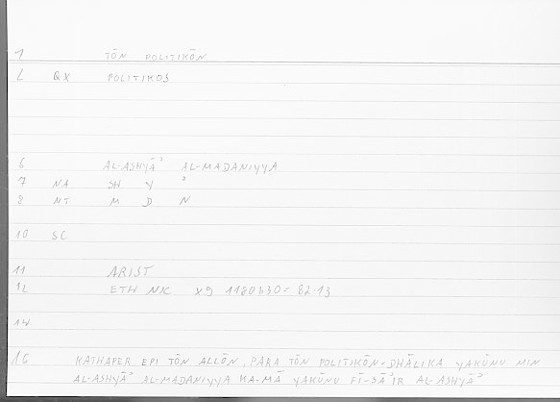 1 TŌN POLITIKŌN
2 QX POLITIKOS
6 AL-ASHYĀʾ AL-MADANIYYA
7 NA SH Y ʾ
8 NT M D N
10 SC
11 ARIST
12 ETH NIC X9 1180b30r 82.13
14
16 KATHAPER EPI TŌN ALLŌN, PARA TŌN POLITIKŌN. DHĀLIKA YAKŪNU MIN
AL-ASHYĀʾ AL-MADANIYYA KA-MĀ YAKŪNU FĪ-SĀʾIR AL-ASHYĀʾ